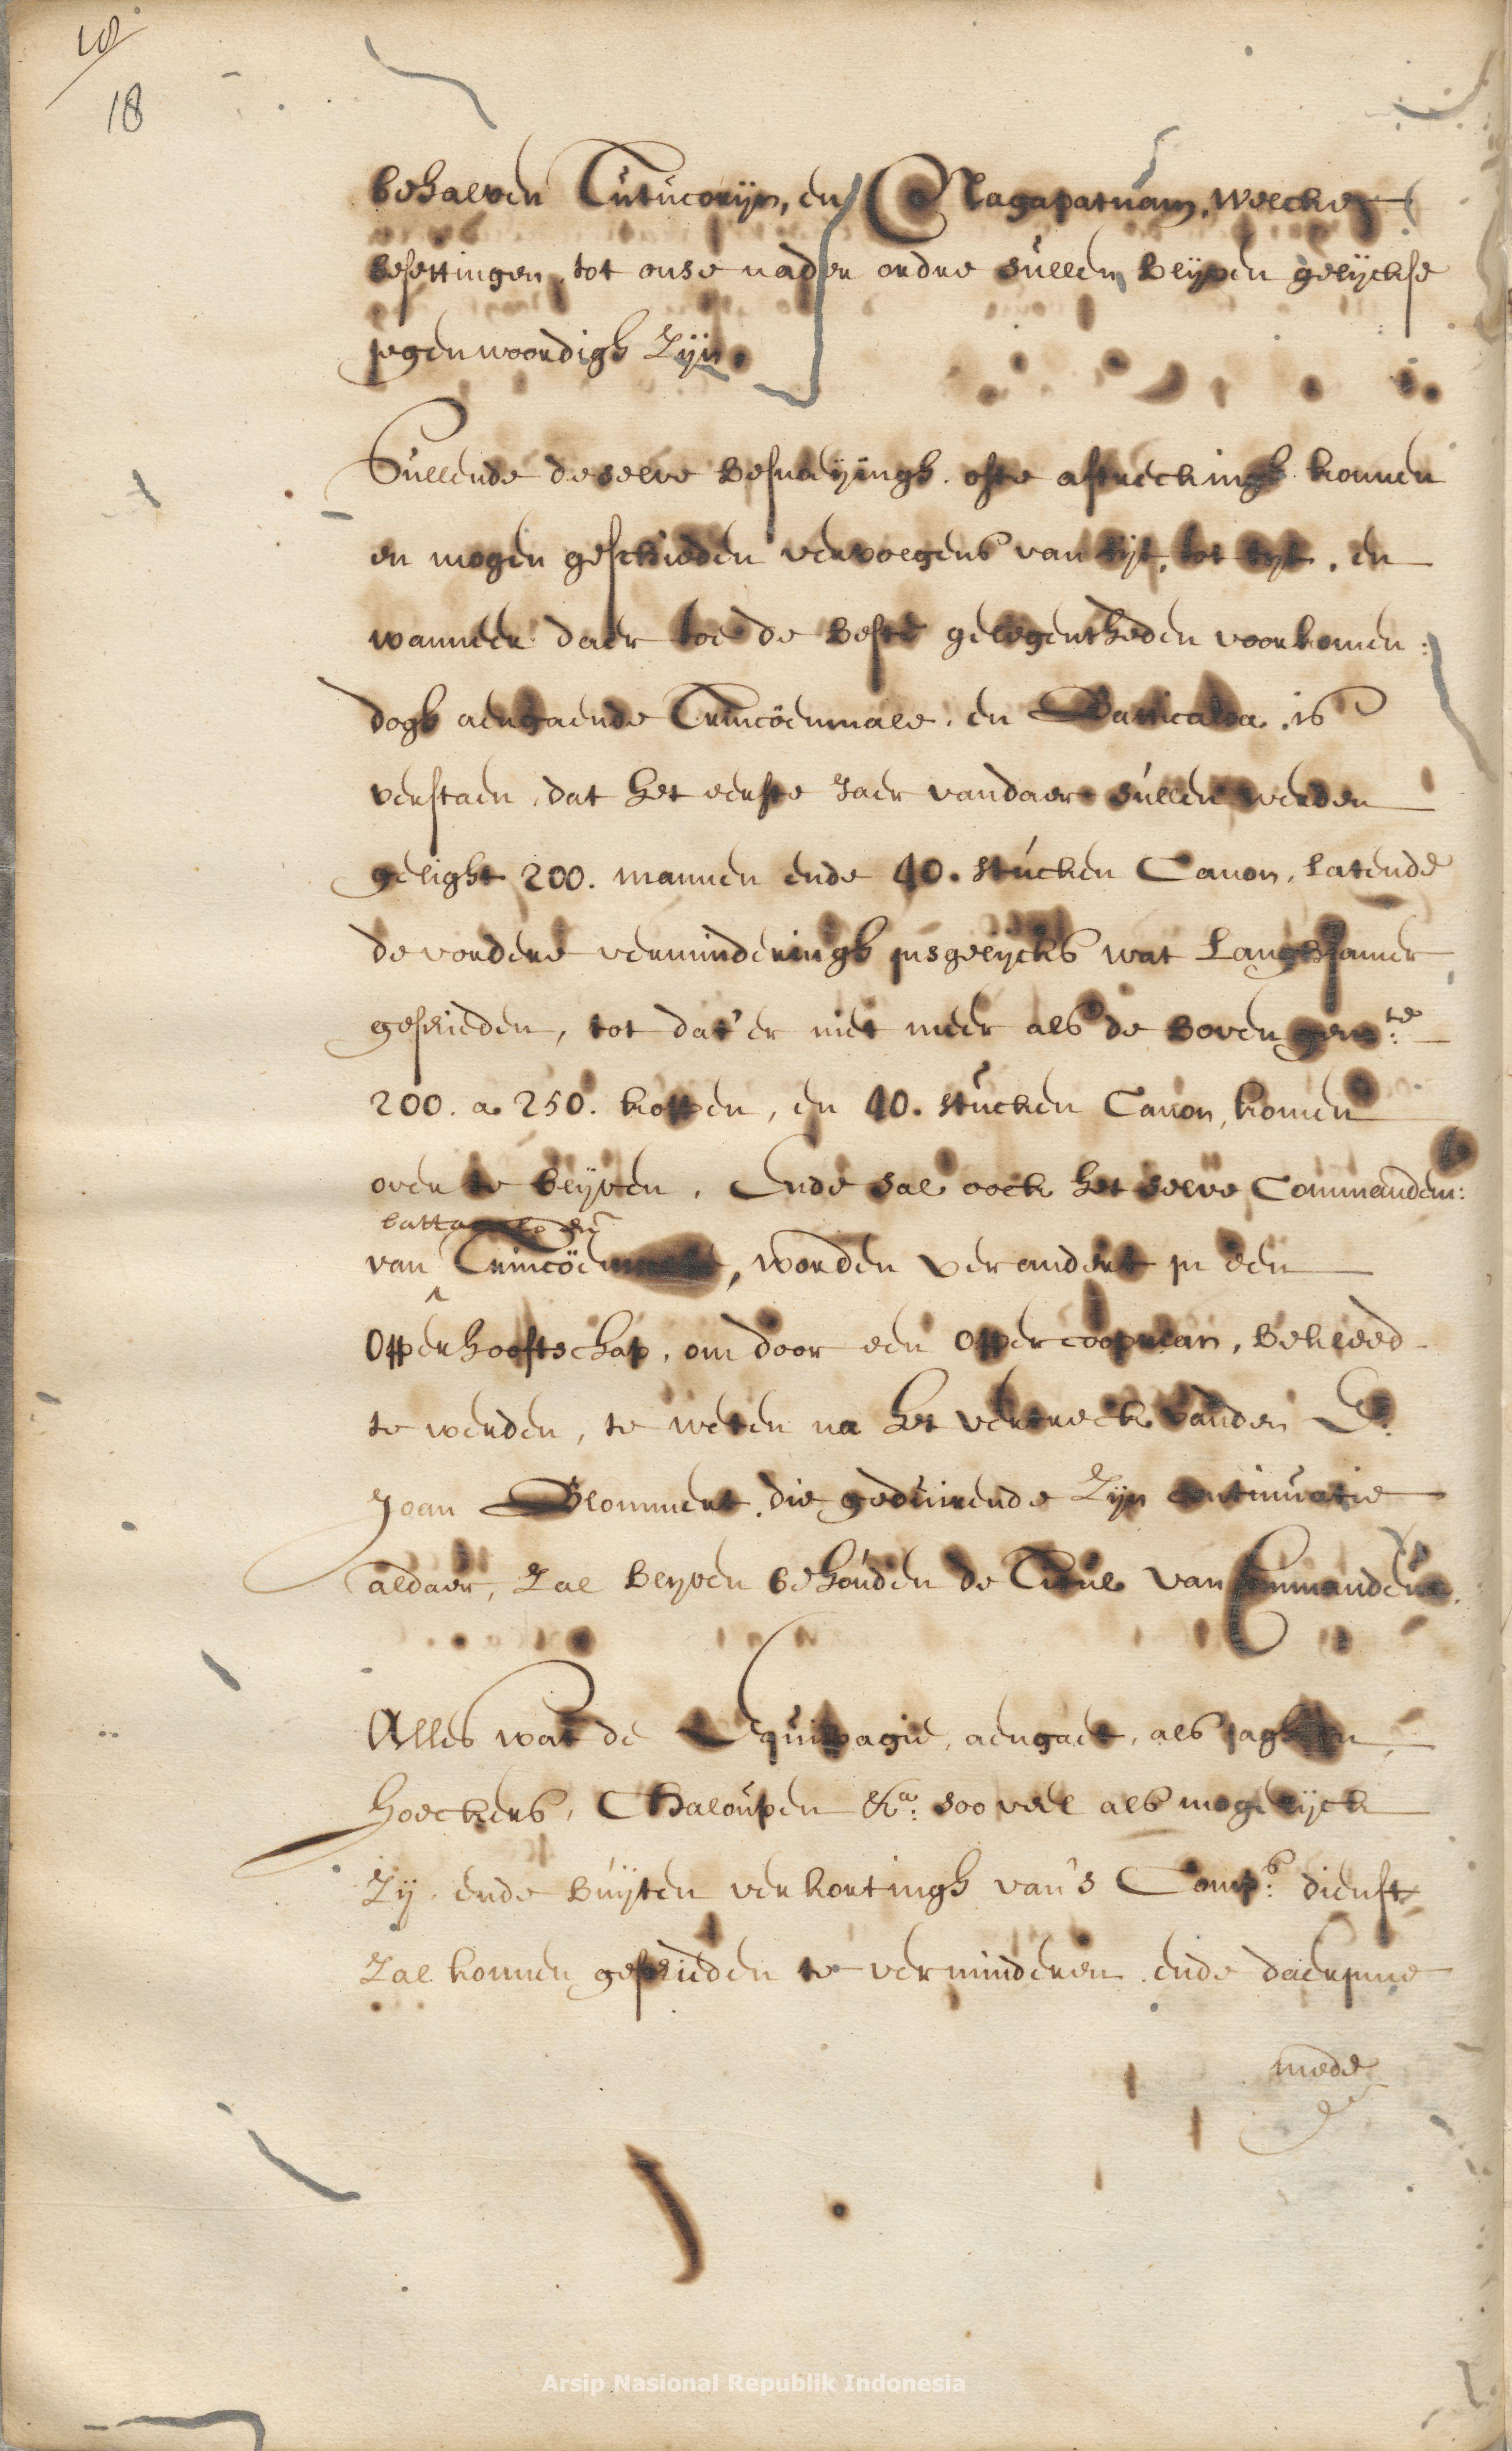 18
18
behalven Tutucorijn, en Nagapatnam, welcke
besettingen, tot onse nader ordre sullen blijven gelijckse
jegenwoordigh zijn.
Sullende deselve besnaijingh ofte aftreckingh konnen
en mogen geschieden vervolgens van tijt, tot tijt, en
wanneer daer toe de beste gelegentheden voorkomen:
dogh aengaende Trincoenmale, en Batticaloa, is
verstaen, dat het eerste Jaer vandaer sullen werden
gelight 200. mannen ende 40. stucken Canon, latende
de vordere verminderingh jnsgelijcks wat Langhsamer
geschieden, tot dat'er niet meer als de boven gem:te
200. a 250. koppen, en 40. stucken Canon, komen
over te blijven, Ende sal oock het selve Commandem:
van Trincoenmale, worden verandert jn een
Opperhooftschap, om door een Oppercoopman, bekleed
te werden, te weten na het vertreck vanden E:
Joan Blommert, die geduirende Zijn continuatie
aldaer, Zal blijven behouden de Titul van Commandeur.
Alles wat de Equipagie, aengaet, als jaghten,
Hoeckers, Chaloupen &a: soo veel als mogelijck
Zij, ende buijten verkortingh van's Comp:s dienst
Zal konnen geschieden te verminderen ende daerjnne
mede
Arsip Nasional Republik Indonesia